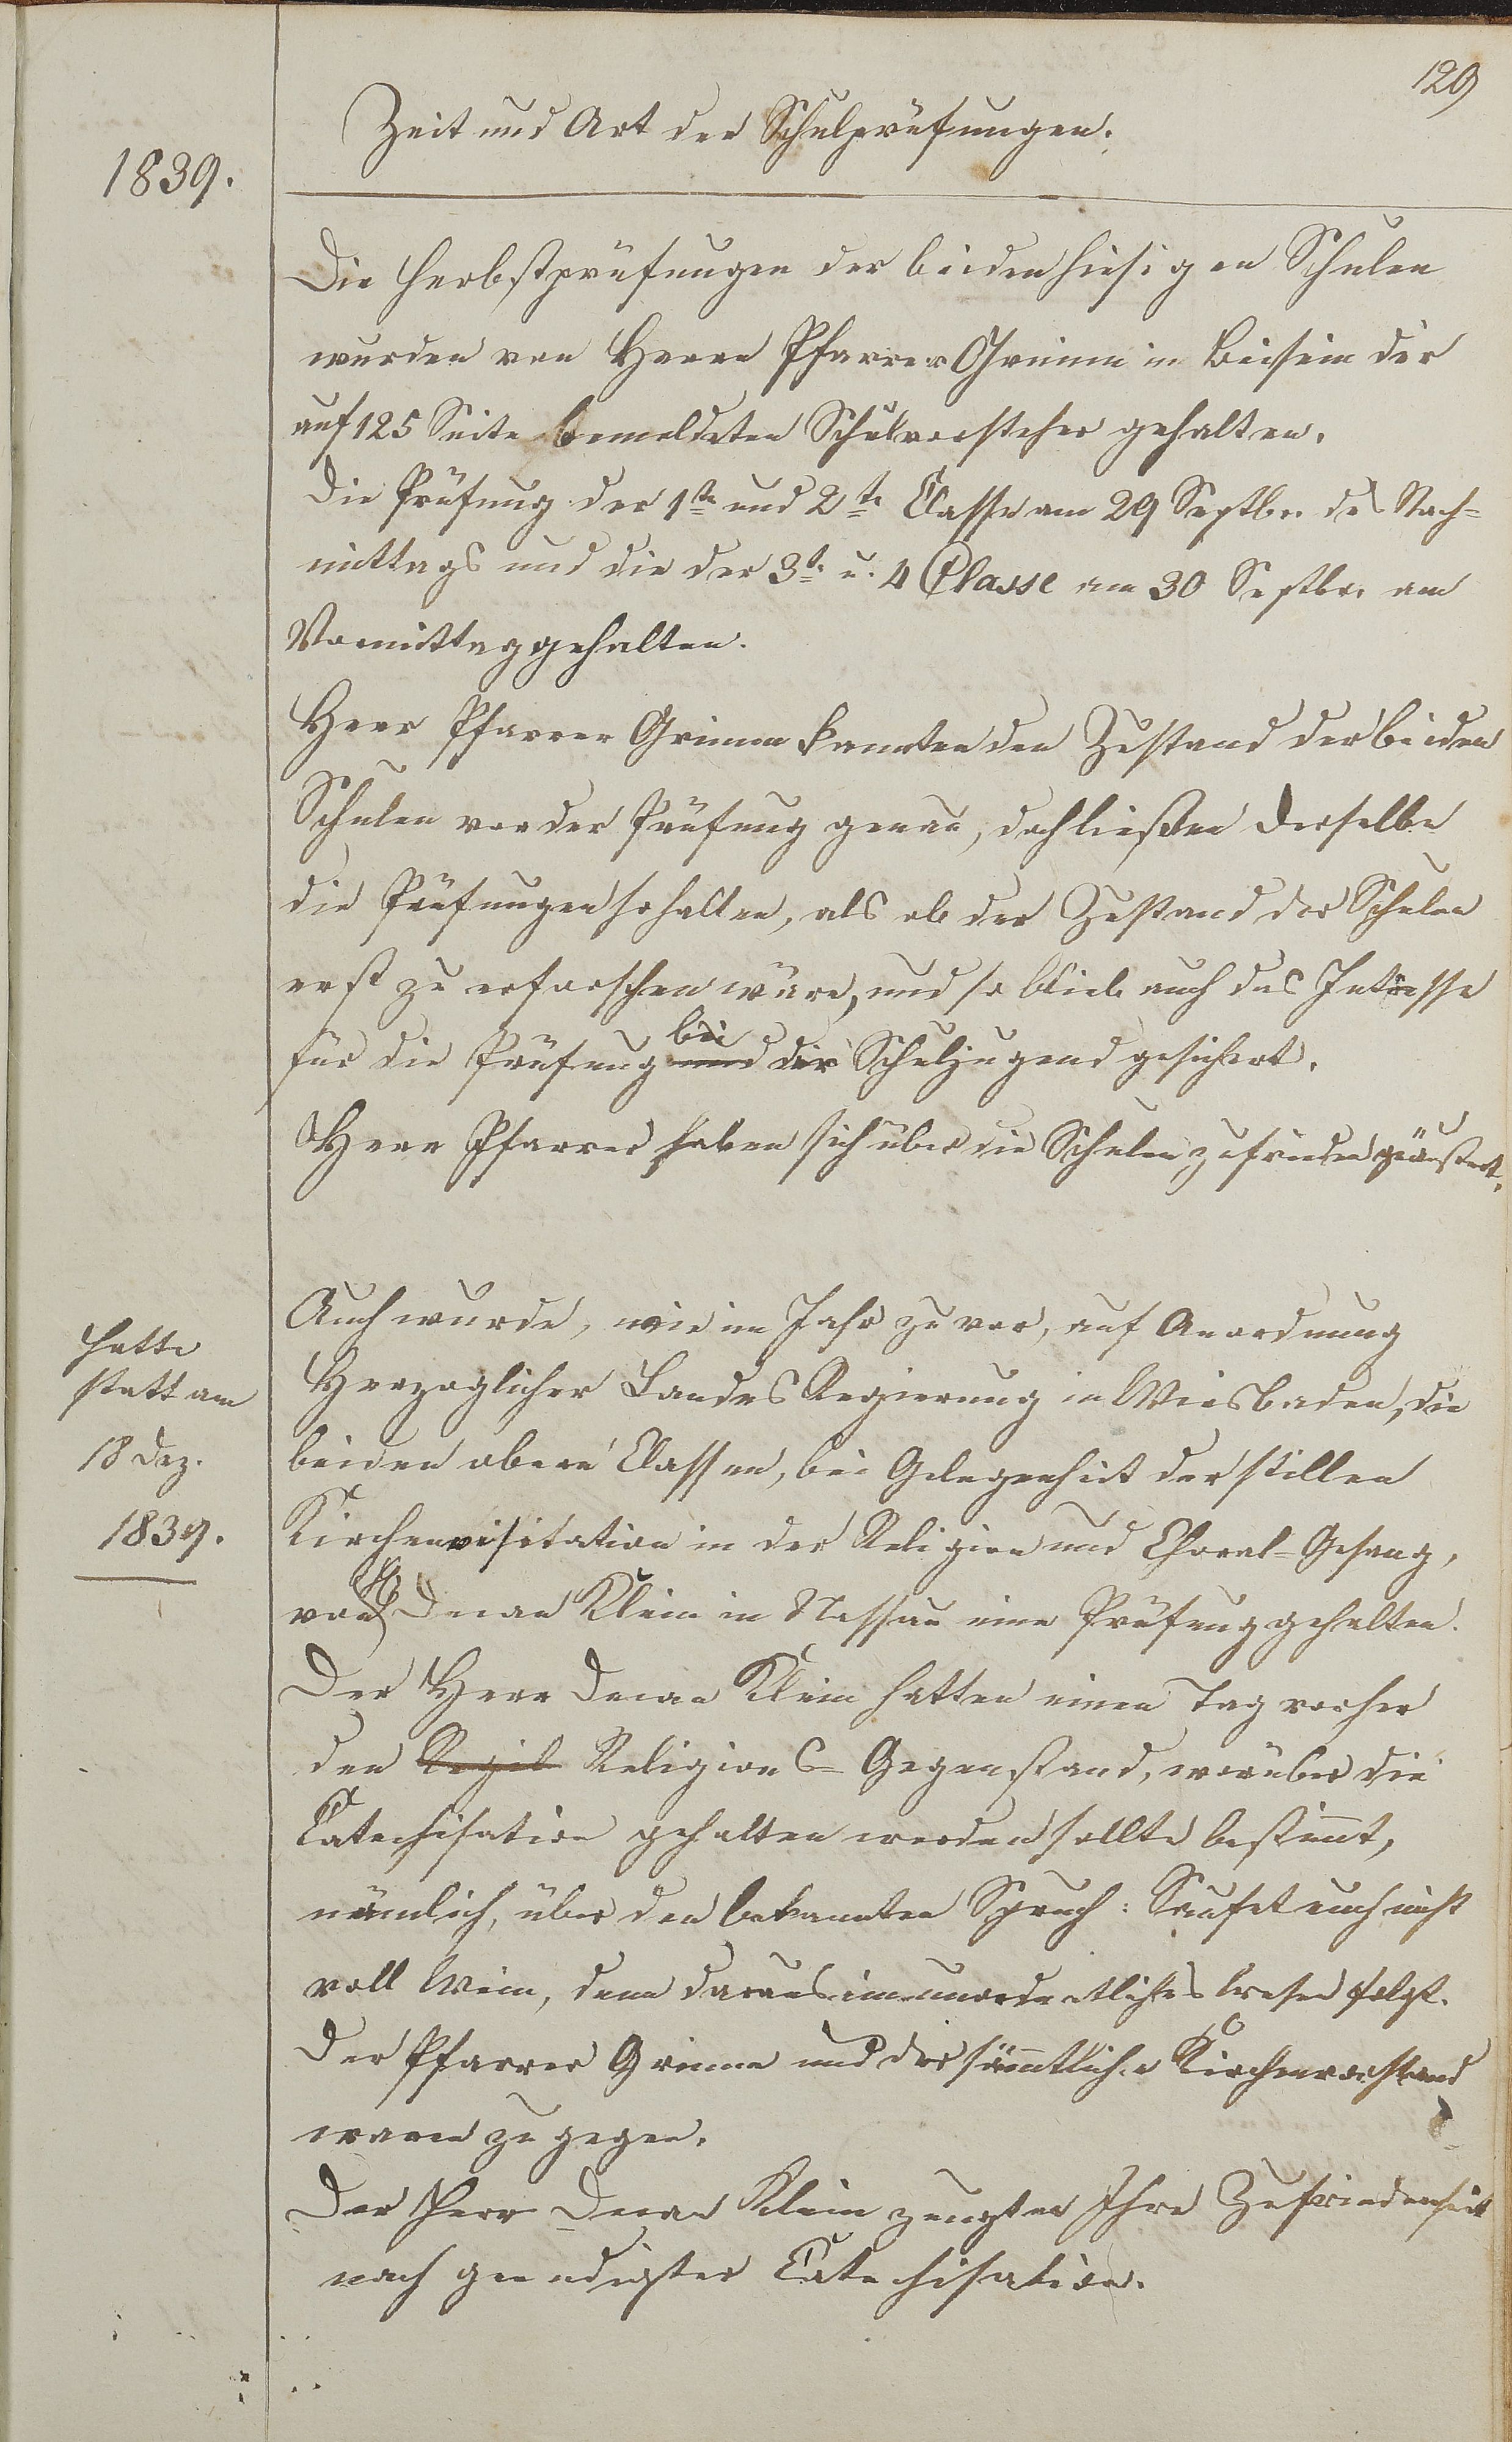 129
Zeit und Art der Schulprüfungen.
1839.
Die Herbstprüfungen der beiden hiesigen Schulen
wurden von Herrn Pfarrer Grimm in Beisein der
auf 125 Seite bemeldeten Schulvorsteher gehalten.
Die Prüfung der 1te und 2te Classe am 29 Septbr. des Nach=
mittags und die der 3t. u. 4 Classe am 30 Septbr. am
Vormittag gehalten.
Herr Pfarrer Grimm kannten den Zustand der beiden
Schulen vor der Prüfung genau, doch ließen derselbe
die Prüfungen so halten, als ob der Zustand der Schulen
erst zu erforschen wäre, und so blieb auch das Intresse
für die Prüfung und bei der Schuljugend gesichert.
Herr Pfarrer haben sich über die Schulen zufrieden geäußert.
Auch wurde, wie im Jahr zuvor, auf Anordnung
Herzoglicher Landes Regierung in Wiesbaden, die
beiden obern Classen, bei Gelegenheit der stillen
Kirchenvisitation in der Religion und Choral=Gesang,
von H Decan Klein in Nassau eine Prüfung gehalten.
hatte
statt am
18 Dez.
1839.
Der Herr Decan Klein hatten einen Tag vorher
den Regil Religions=Gegenstand, worüber die
Catechisation gehalten werden sollte bestimt,
nämlich, über den bekannten Spruch: Saufet euch nicht
voll Wein, denn daraus ein unordentliches Wesen folgt.
Der Pfarrer Grimm und der sämtliche Kirchenvorstand
waren zugegen.
Der Herr Decan Klein zeugten Ihre Zufriedenheit
nach geendigter Catechisation.